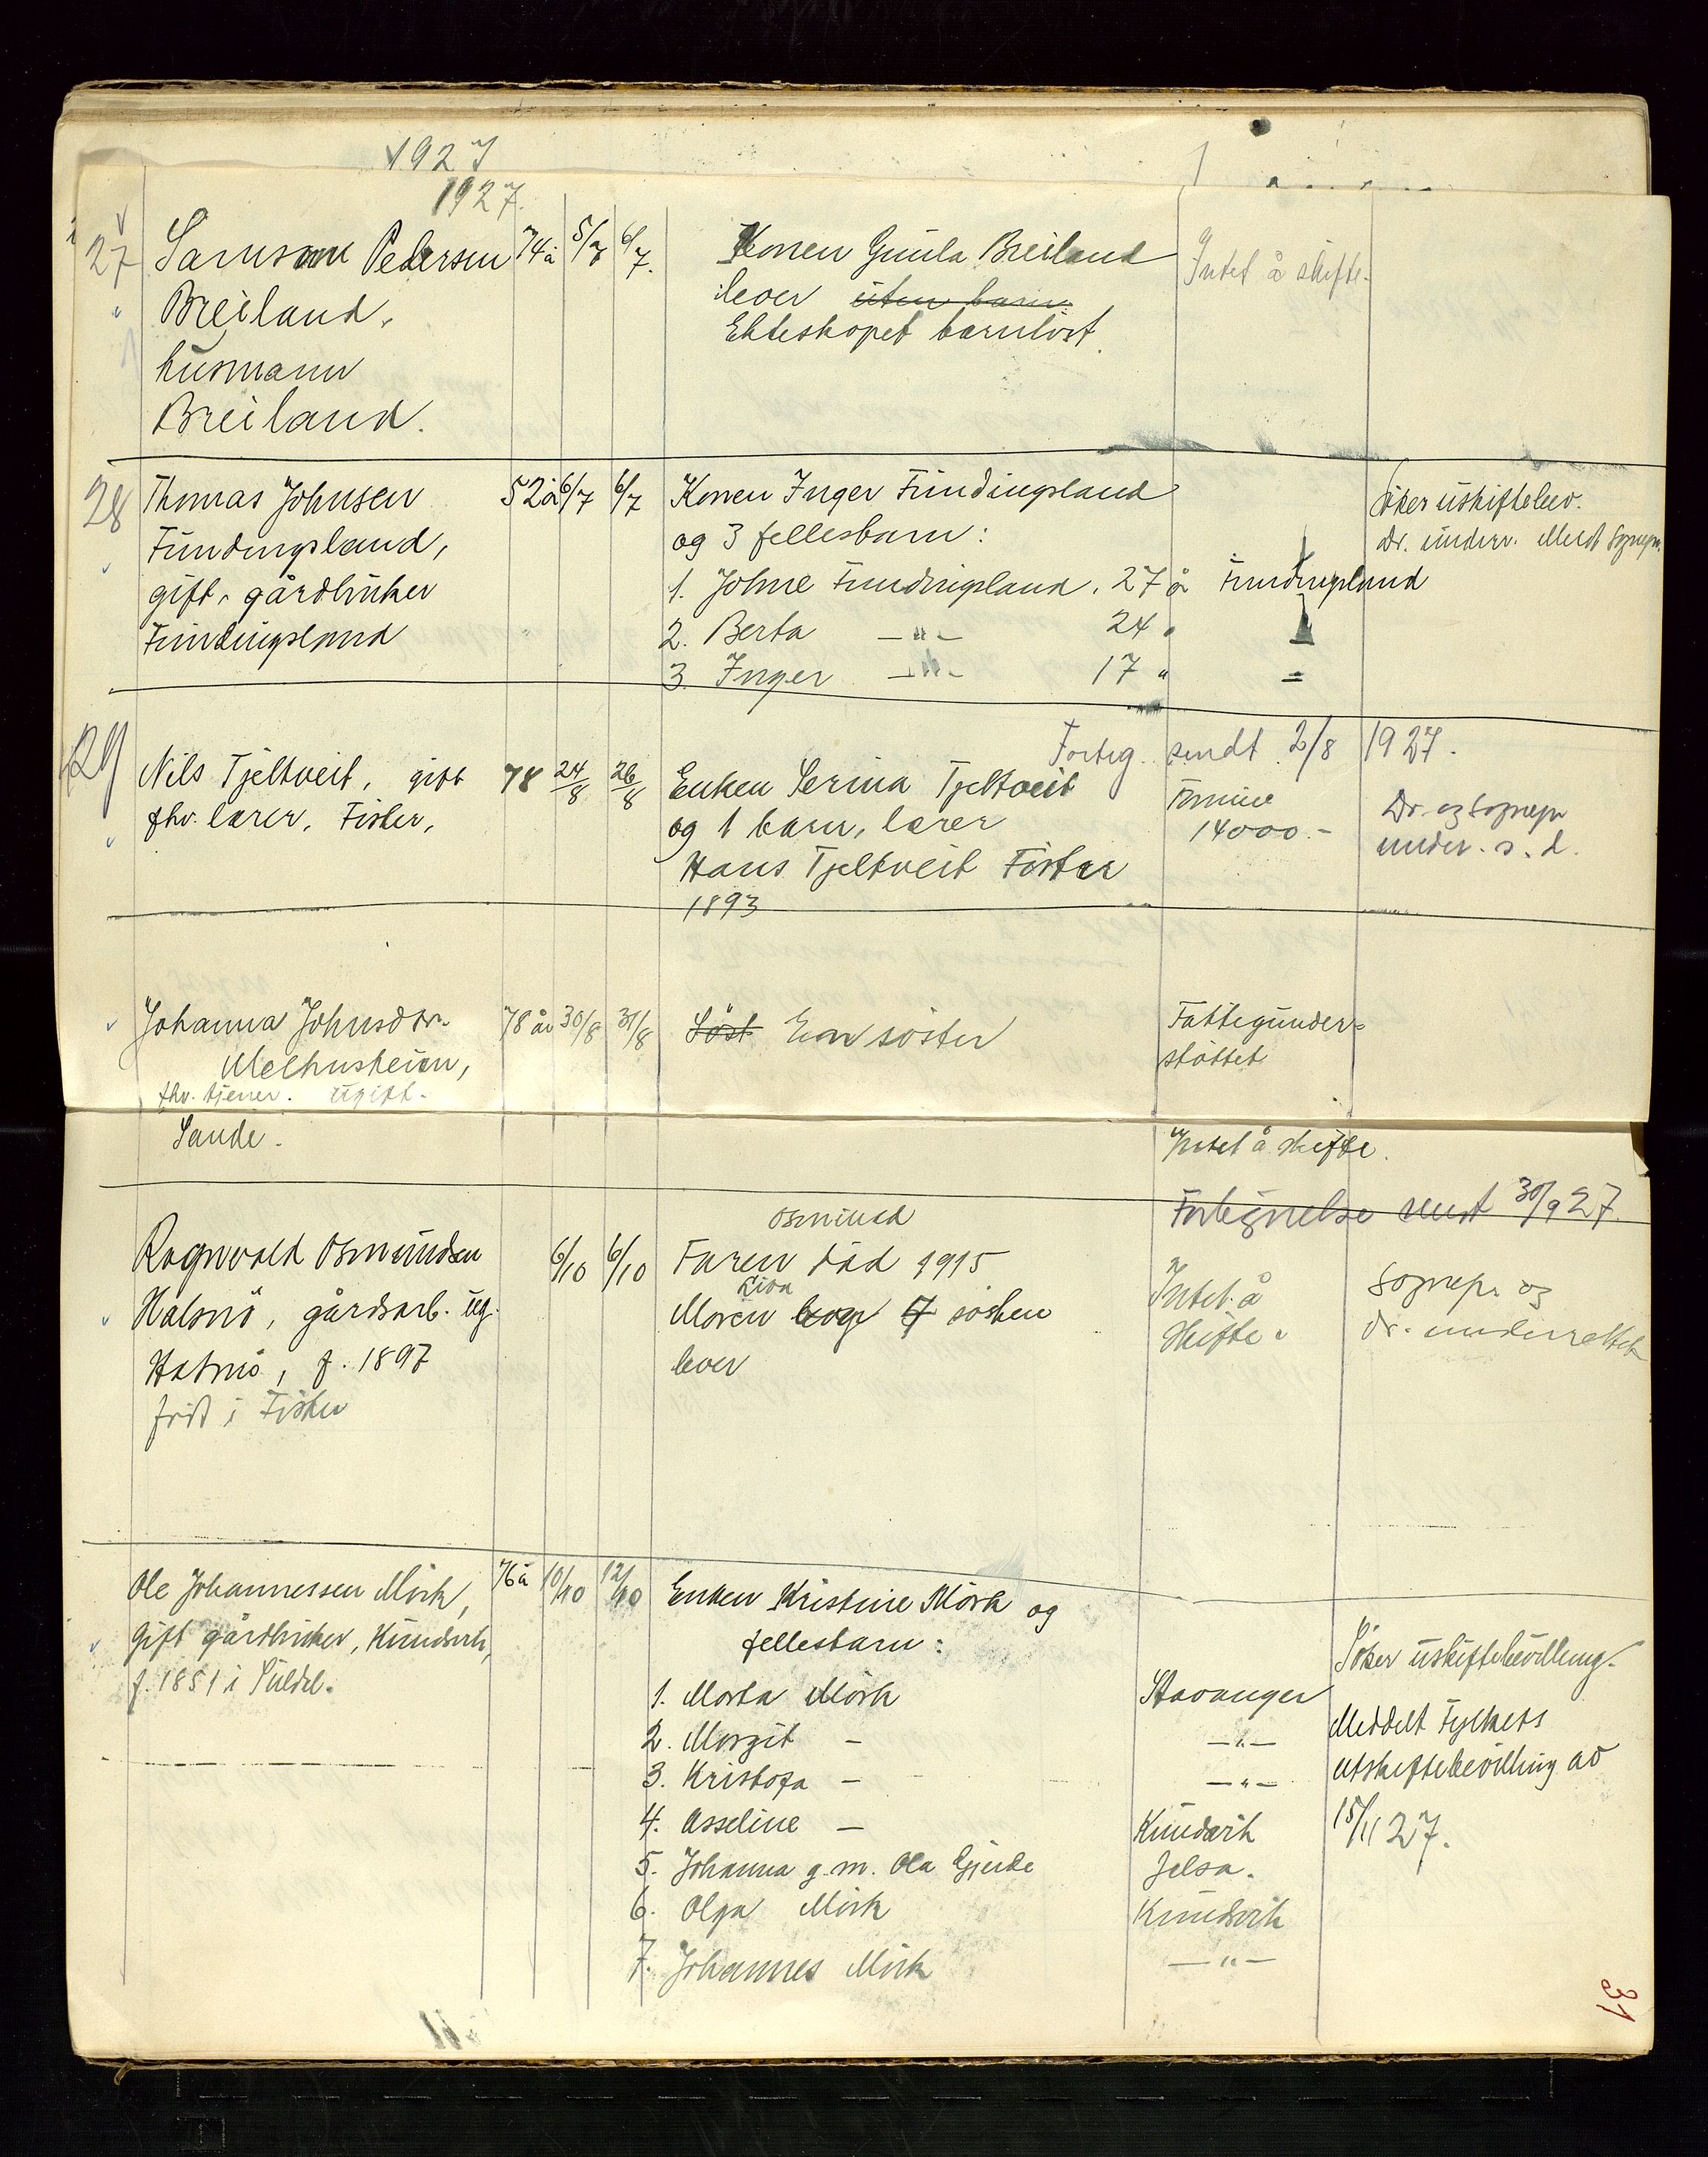 1927
1927.
27 Samson Pedersen 74 å 5/7 6/7. Konen Gunla Breiland Intet å skifte.
Breiland, lever uten barn
husmann Ekteskapet barnløst.
Breiland.
28 Thomas Johnsen 52 å 6/7 6/7 Konen Inger Fundingsland Søker uskiftebev.
Fundingsland, og 3 fellesbarn: Dr. underr. Meldt sognepr.
gift, gårdbruker 1. Johne Fundingsland, 27 å Fundingsland
Fundingsland 2. Berta —"— 24 "
3. Inger —"— 17 " =
Forteg. sendt 2/8 1927.
29 Nils Tjeltveit, gift 78 24/8 26/8 Enken Serina Tjeltveit Formue Dr. og sognepr
fhv. lærer, Fister, og 1 barn, lærer 14000.- under. s. d.
Hans Tjeltveit Fister
1893
Johanna Johnsdtr. 78 år 30/8 31/8 Søst En søster Fattigunder=
Melhusheien, støttet
fhv. tjener. ugift.
Sande. Intet å skifte.
Fortegnelse sendt 30/9 27.
Osmund
Ragnvald Osmundsen 6/10 6/10 Faren død 1915 Intet å Sognepr. og
Liva
Halsnø, gårdsarb. ug. Moren og 7 søsken skifte. dr. underrettet
Halsnø, f. 1897 lever
født i Fister
Ole Johannessen Mørk, 76 å 10/10 12/10 Enken Kristine Mørk og
Gift gårdbruker, Kundsvik, fellesbarn: Søker uskiftebevilling.
f. 1851 i Suldal. 1. Marta Mørk Stavanger
2. Margit — —"— Meddelt Fylkets
3. Kristofa — —"— utskiftebevilling av
4. Asseline — Kundsvik 15/11 27.
5. Johanna g. m. Ola Gjerde Jelsa.
6. Olga Mørk Kundsvik
7. Johannes Mørk —"—
31